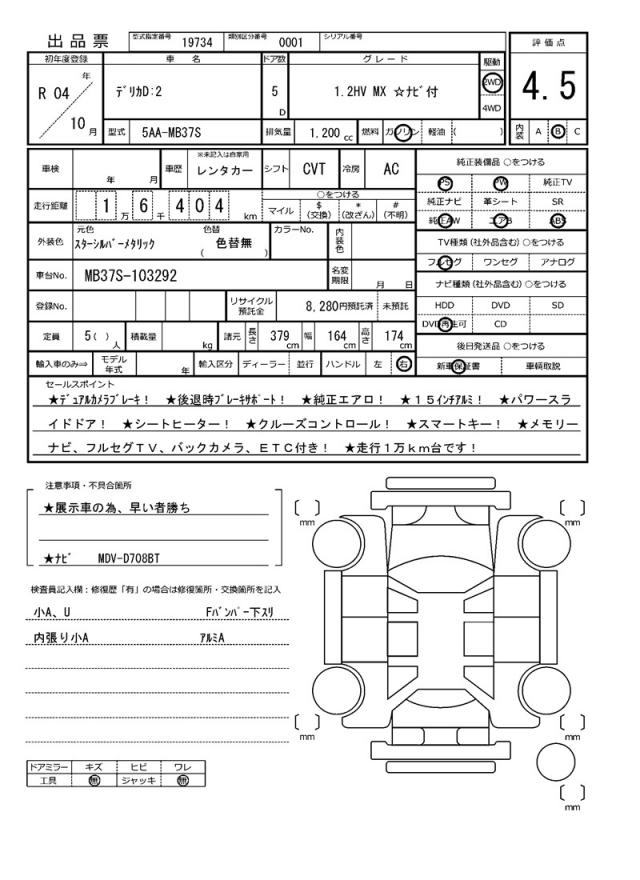 出品票 型式指定番号 19734 類別区分番号 0001 シリアル番号
評価点 4.5
初年度登録 車名 ドア数 グレード 駆動
R 04 年 10 月 デリカD:2 5 D 1.2HV MX ☆ナビ付 2WD 4WD
型式 5AA-MB37S 排気量 1,200 cc 燃料 ガソリン 軽油 ( )
内装 A B C
車検 年 月 車歴 ※未記入は自家用 レンタカー シフト CVT 冷房 AC
走行距離 1 万 6 千 4 0 4 km
○をつける
マイル $ (交換) * (改ざん) # (不明)
外装色 元色 スターシルバーメタリック 色替 ( 色替無 ) カラーNo. 内装色
車台No. MB37S-103292 名変期限 月 日
登録No. リサイクル預託金 8,280円預託済 未預託
定員 5( ) 人 積載量 kg 諸元 長さ 379 cm 幅 164 cm 高さ 174 cm
輸入車のみ⇒ モデル年式 年 輸入区分 ディーラー 並行 ハンドル 左 右
純正装備品 ○をつける
PS PW 純正TV
純正ナビ 革シート SR
純正AW エアB ABS
TV種類 (社外品含む) ○をつける
フルセグ ワンセグ アナログ
ナビ種類 (社外品含む) ○をつける
HDD DVD SD
DVD再生可 CD
後日発送品 ○をつける
新車保証書 車輌取説
セールスポイント
★デュアルカメラブレーキ！ ★後退時ブレーキサポート！ ★純正エアロ！ ★１５インチアルミ！ ★パワースラ
イドドア！ ★シートヒーター！ ★クルーズコントロール！ ★スマートキー！ ★メモリー
ナビ、フルセグＴＶ、バックカメラ、ＥＴＣ付き！ ★走行１万ｋｍ台です！
注意事項・不具合箇所
★展示車の為、早い者勝ち
★ナビ MDV-D708BT
検査員記入欄：修復歴「有」の場合は修復箇所・交換箇所を記入
小A、U Fバンパー下スリ
内張り小A アルミA
ドアミラー キズ ヒビ ワレ
工具 無 ジャッキ 無
mm
mm
mm
mm
mm